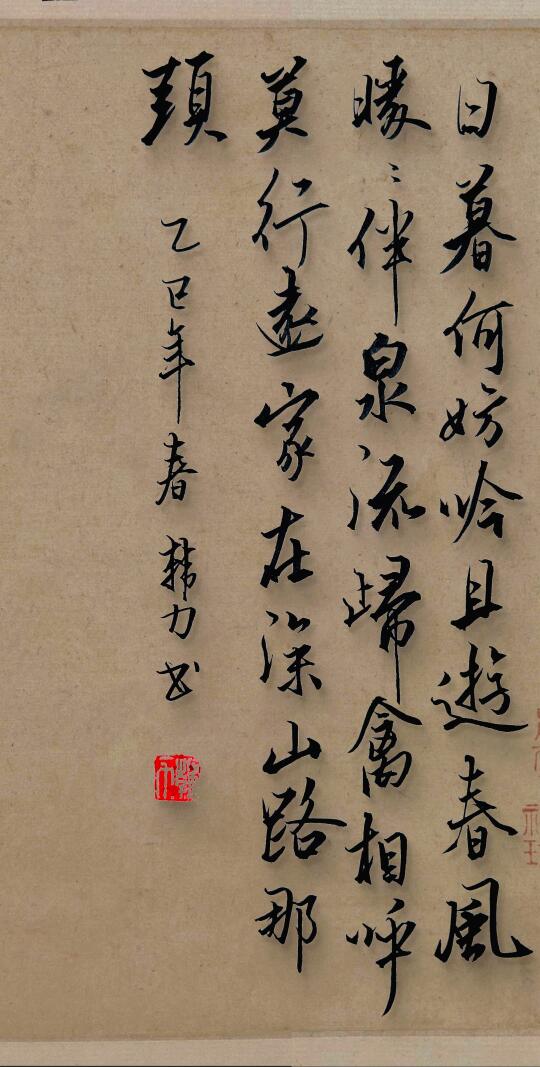 日暮何妨吟且遊春風
暖〻伴泉流歸禽相呼
莫行遠家在深山路那
頭
乙巳年春 韓力书